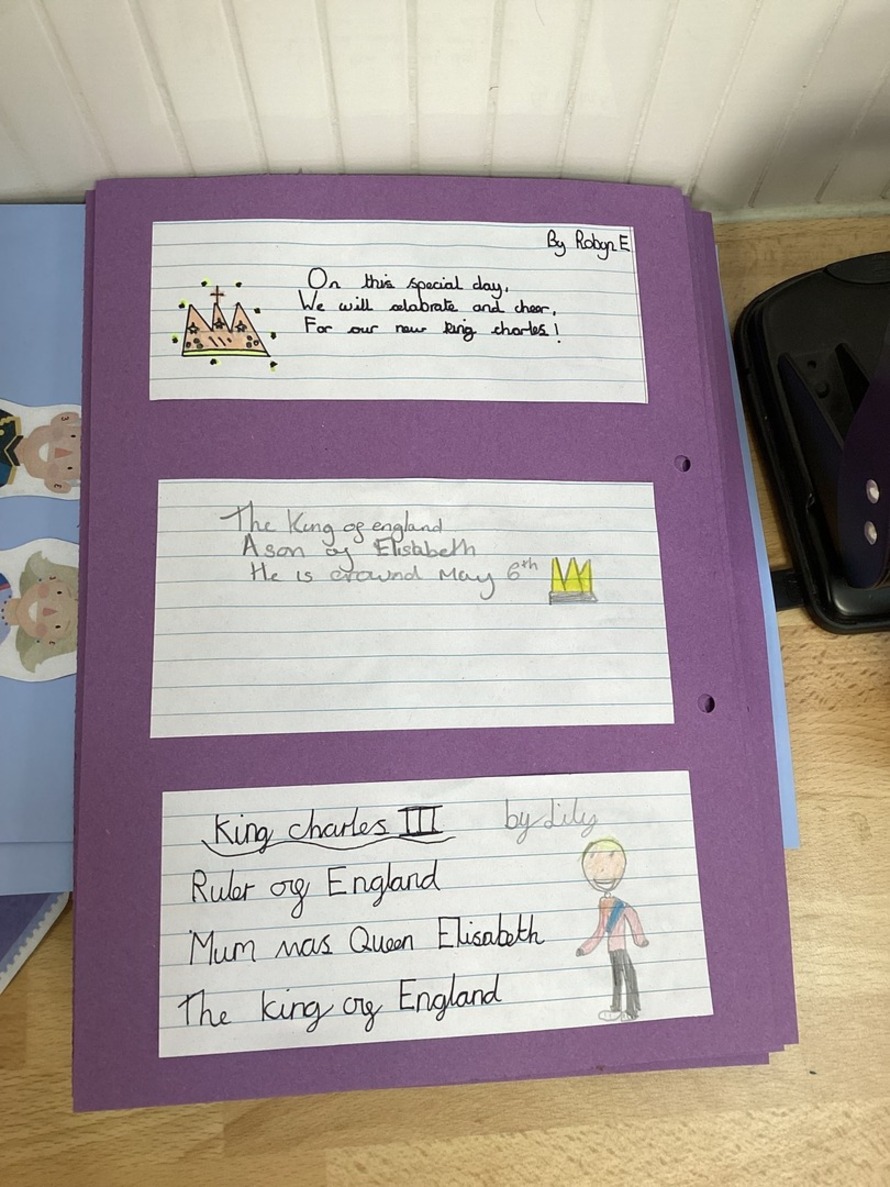 By Robyn E
On this special day,
We will celabrate and cheer,
For our new king charles!
The King of england
A son of Elisabeth
He is crownd May 6th
King charles III by Lily
Ruler of England
Mum was Queen Elisabeth
The king of England